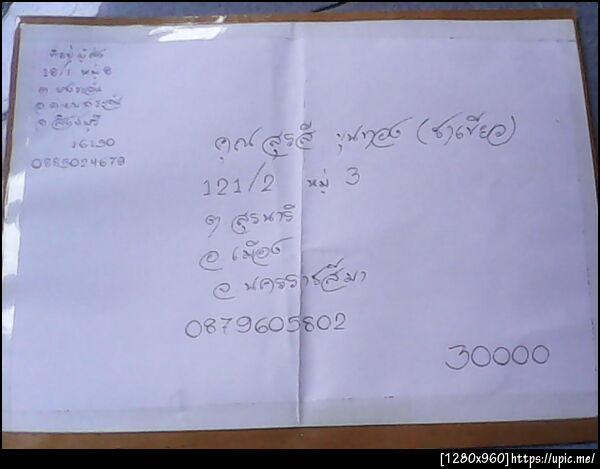 ที่อยู่ ผู้ส่ง
18/1 หมู่ 8
ต
อ ค่ายบางระจัน
จ สิงห์บุรี
16150
0885024679
คุณ สุรสี ขุนทอง (ชาเขียว)
121/2 หมู่ 3
ต สุรนารี
อ เมือง
จ นครราชสีมา
0879605802
30000
[1280x960]https://upic.me/